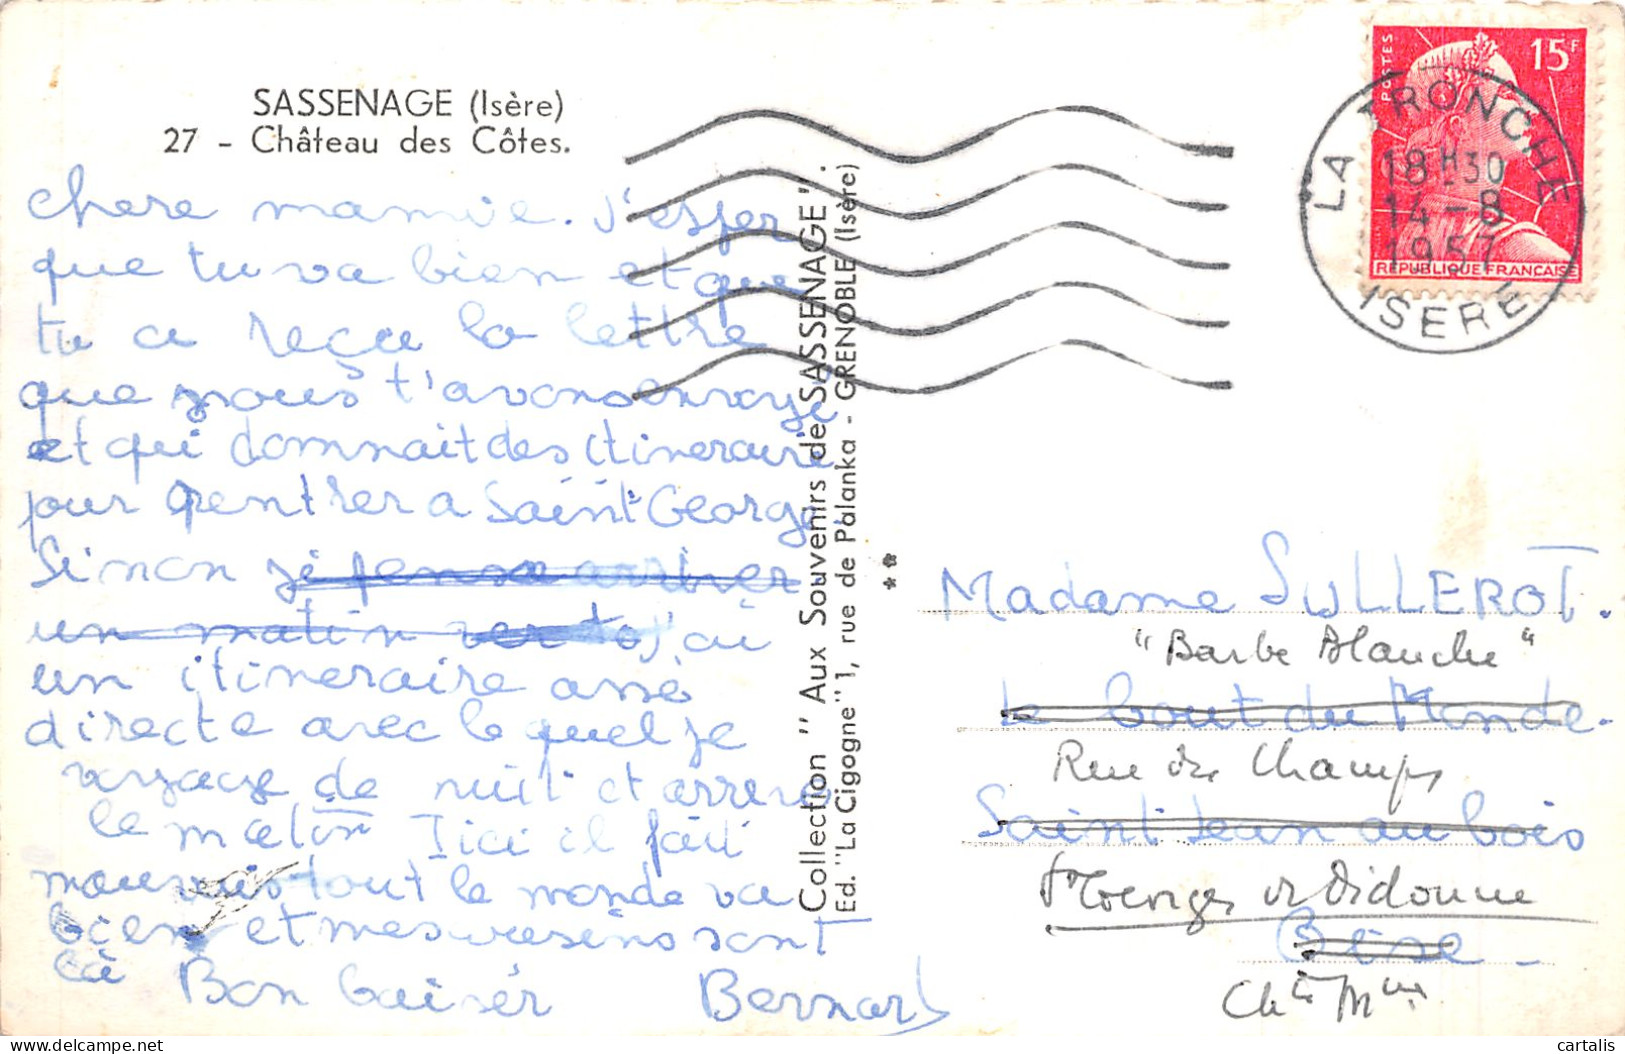 SASSENAGE (Isère)
27 - Château des Côtes.
chere mamie. J'esper
que tu va bien et que
tu a reçu la lettre
que nous t'avons envoyé
et qui domnait des itineraire
pour rentrer a Saint George
Sinon je pense arriver
un matin J'ai
un itineraire assé
directe avec le quel je
voyage de nuit et arrive
le matin Ici il fait
mauvais tout le monde va
bien et mes cousins sont
là Bon baiser Bernard
Collection "Aux Souvenirs de SASSENAGE".
Ed. "La Cigogne" 1, rue de Palanka - GRENOBLE (Isère)
POSTES
15F
REPUBLIQUE FRANÇAISE
LA TRONCHE
18H30
14-8
1957
ISERE
Madame SULLEROT.
"Barbe Blanche"
le bout du Monde.
Rue des Champs
Saint Jean au bois
St Georges de Didonne
Oise -
Chte Mme
cartalis